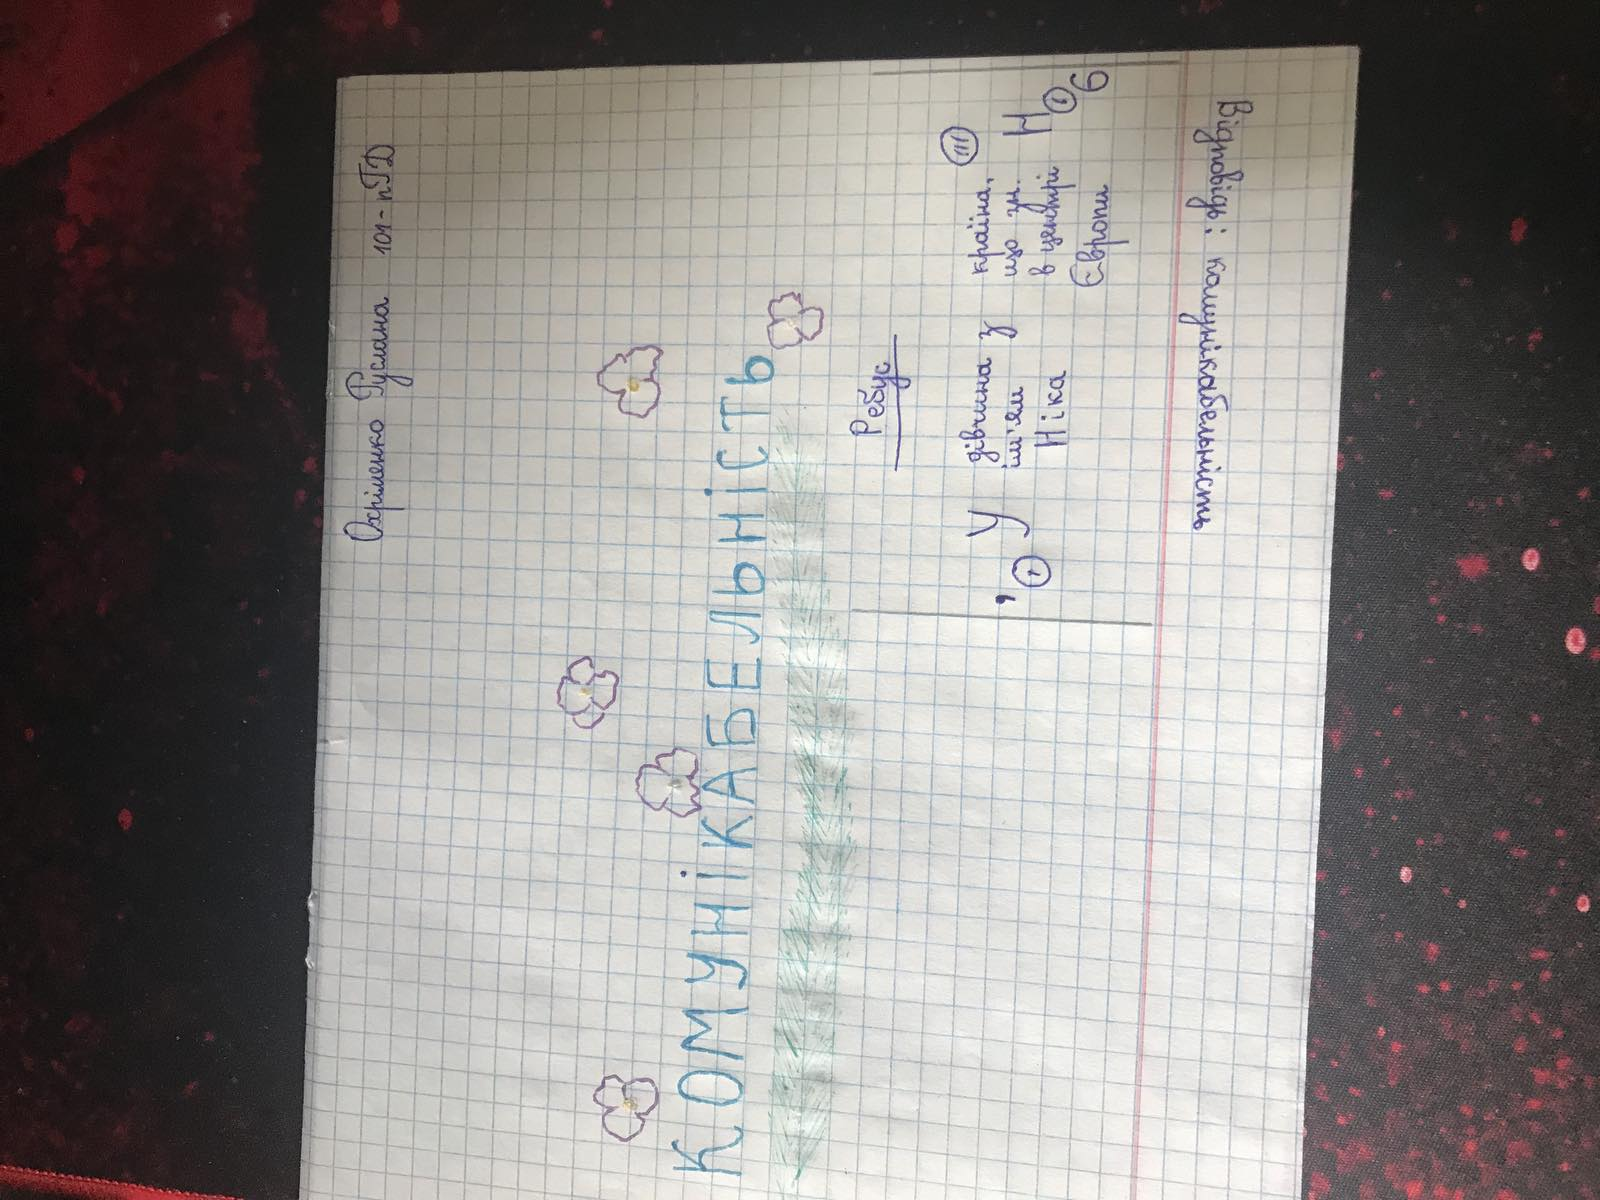 Охріменко Руслана 101-пГД
КОМУНІКАБЕЛЬНІСТЬ
Ребус
, ① У
дівчина з
ім'ям
Ніка
країна,
що зн.
в центрі
Європи
Н ① 6
Відповідь: комунікабельність